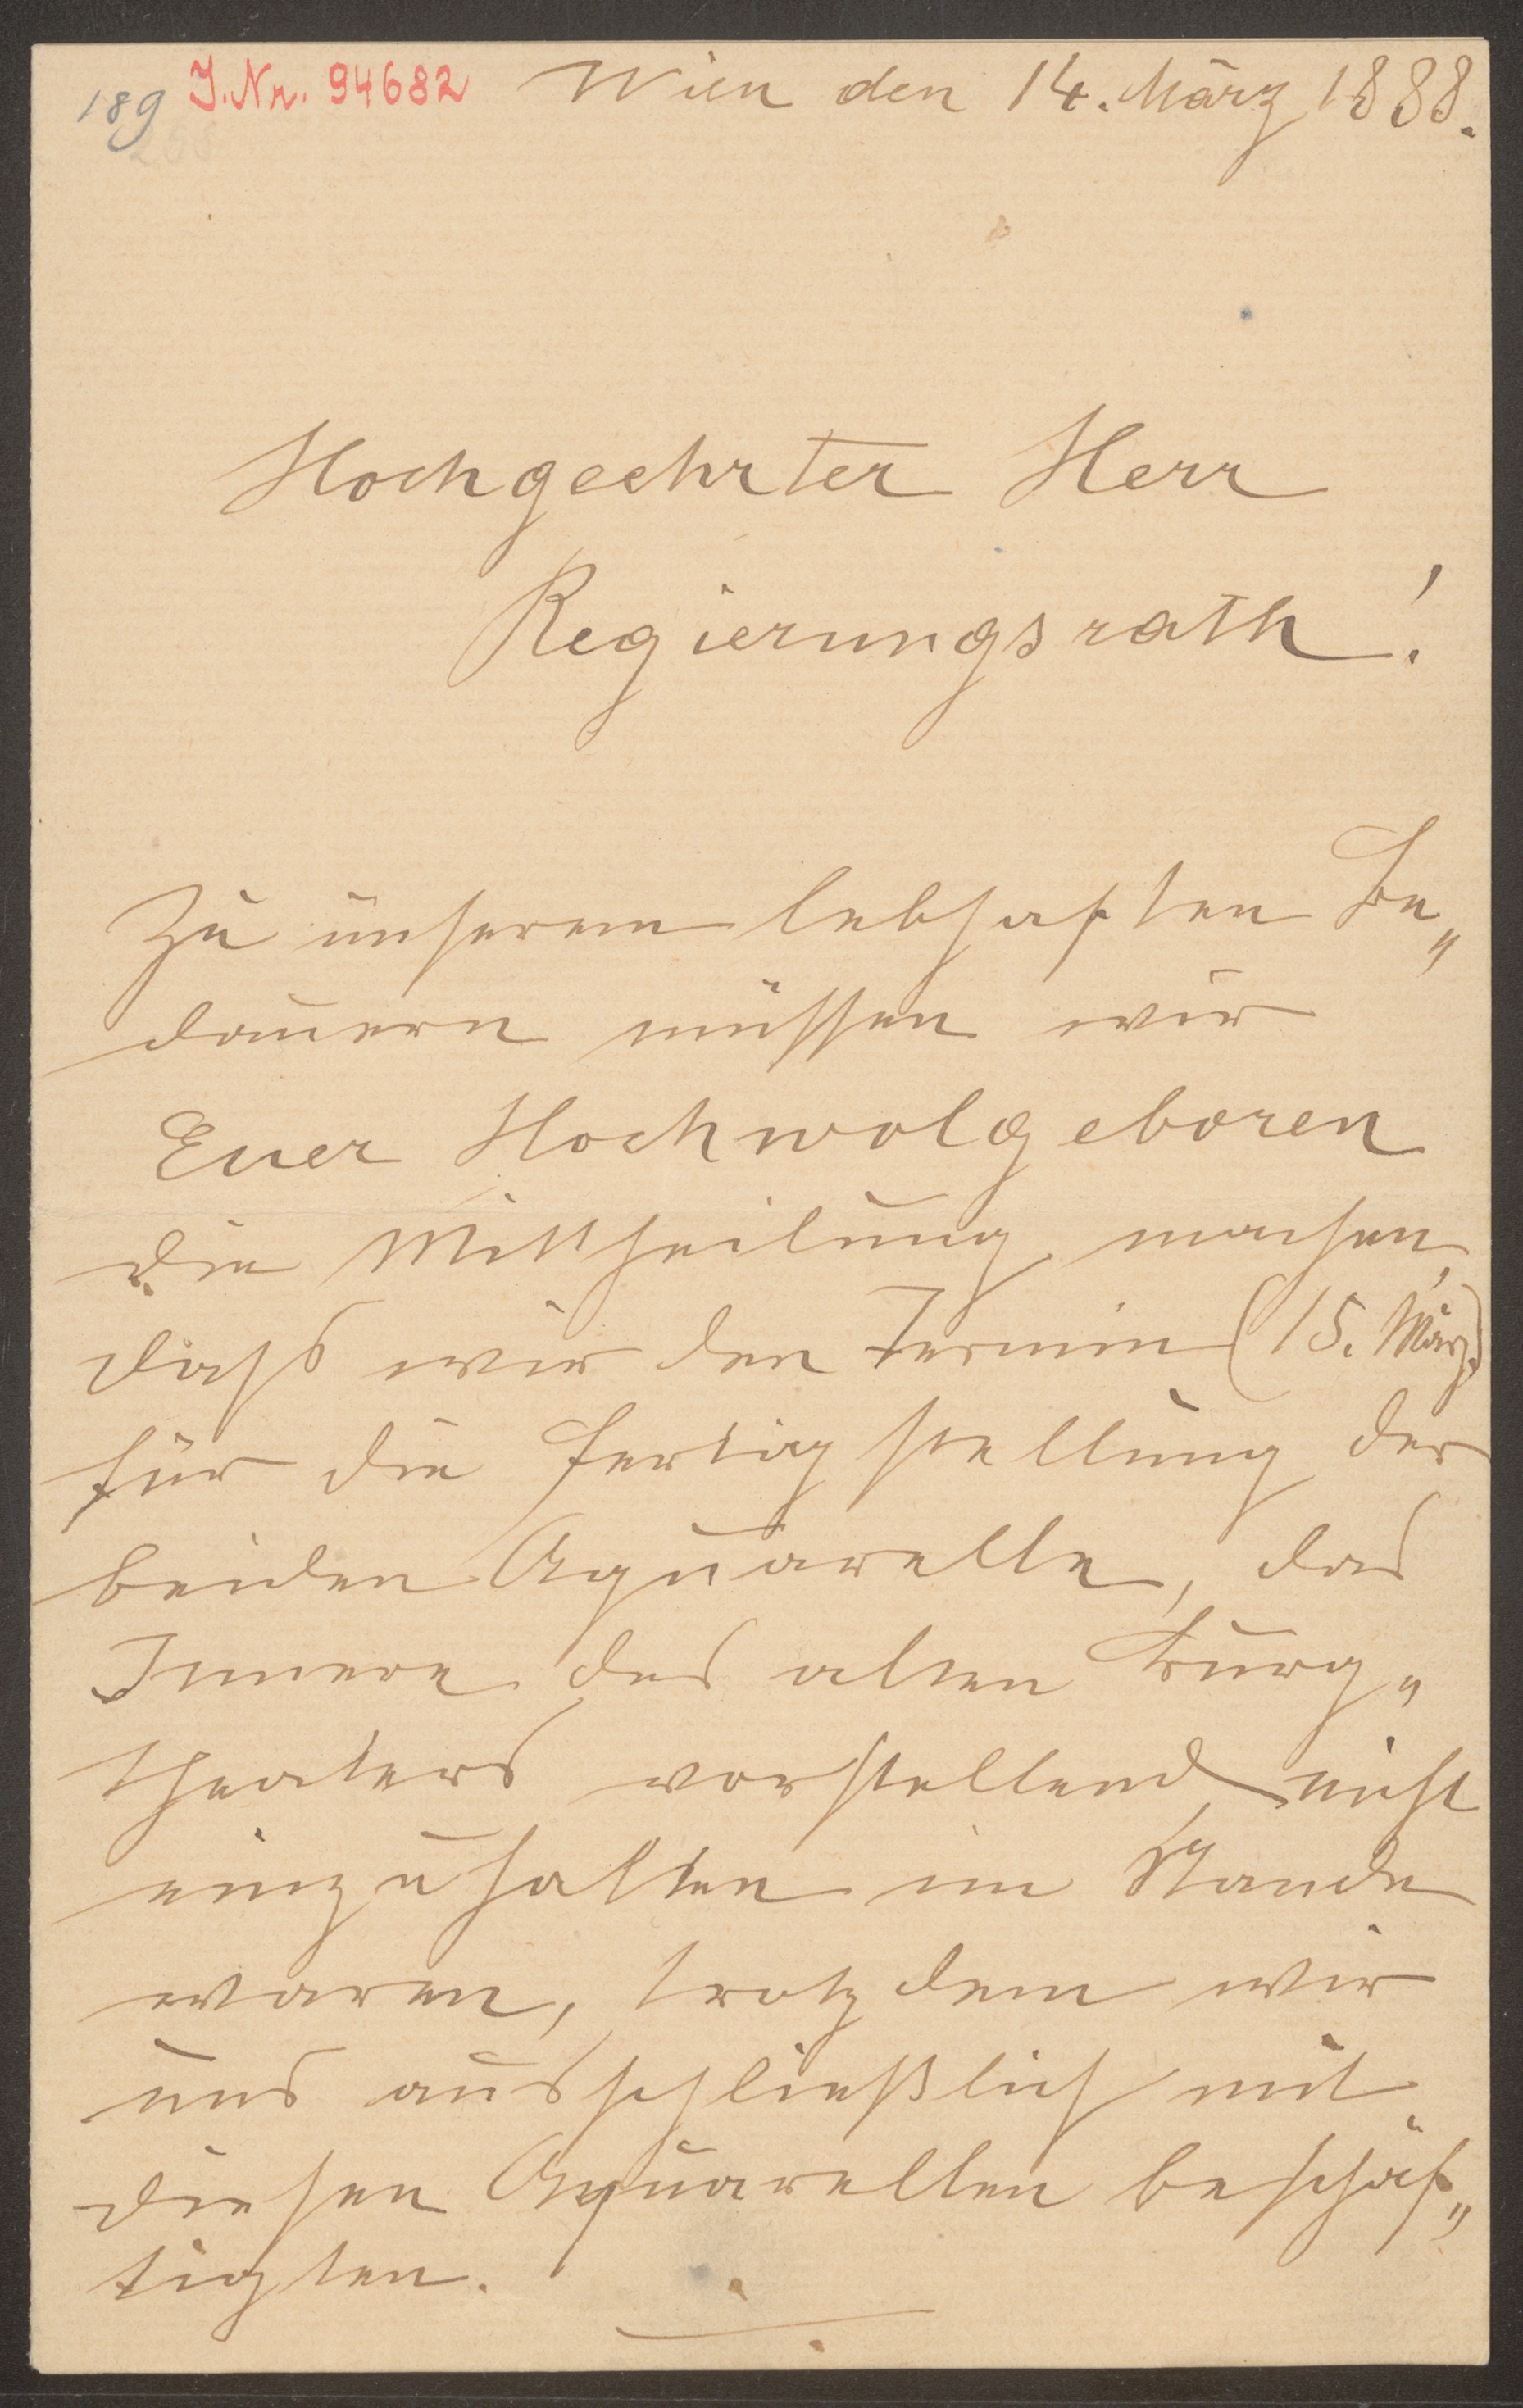 189 J.Nr. 94682 Wien den 14. März 1888.
Hochgeehrter Herr
Regierungsrath!
Zu unserem lebhaften Be„
dauern müssen wir
Euer Hochwolgeboren
die Mittheilung machen,
dass wir den Termin (15. März)
für die Fertigstellung der
beiden Aquarelle, das
Innere des alten Burg„
theaters vorstellend nicht
einzuhalten im Stande
waren, trotzdem wir
uns ausschließlich mit
diesen Aquarellen beschäf„
tigten.